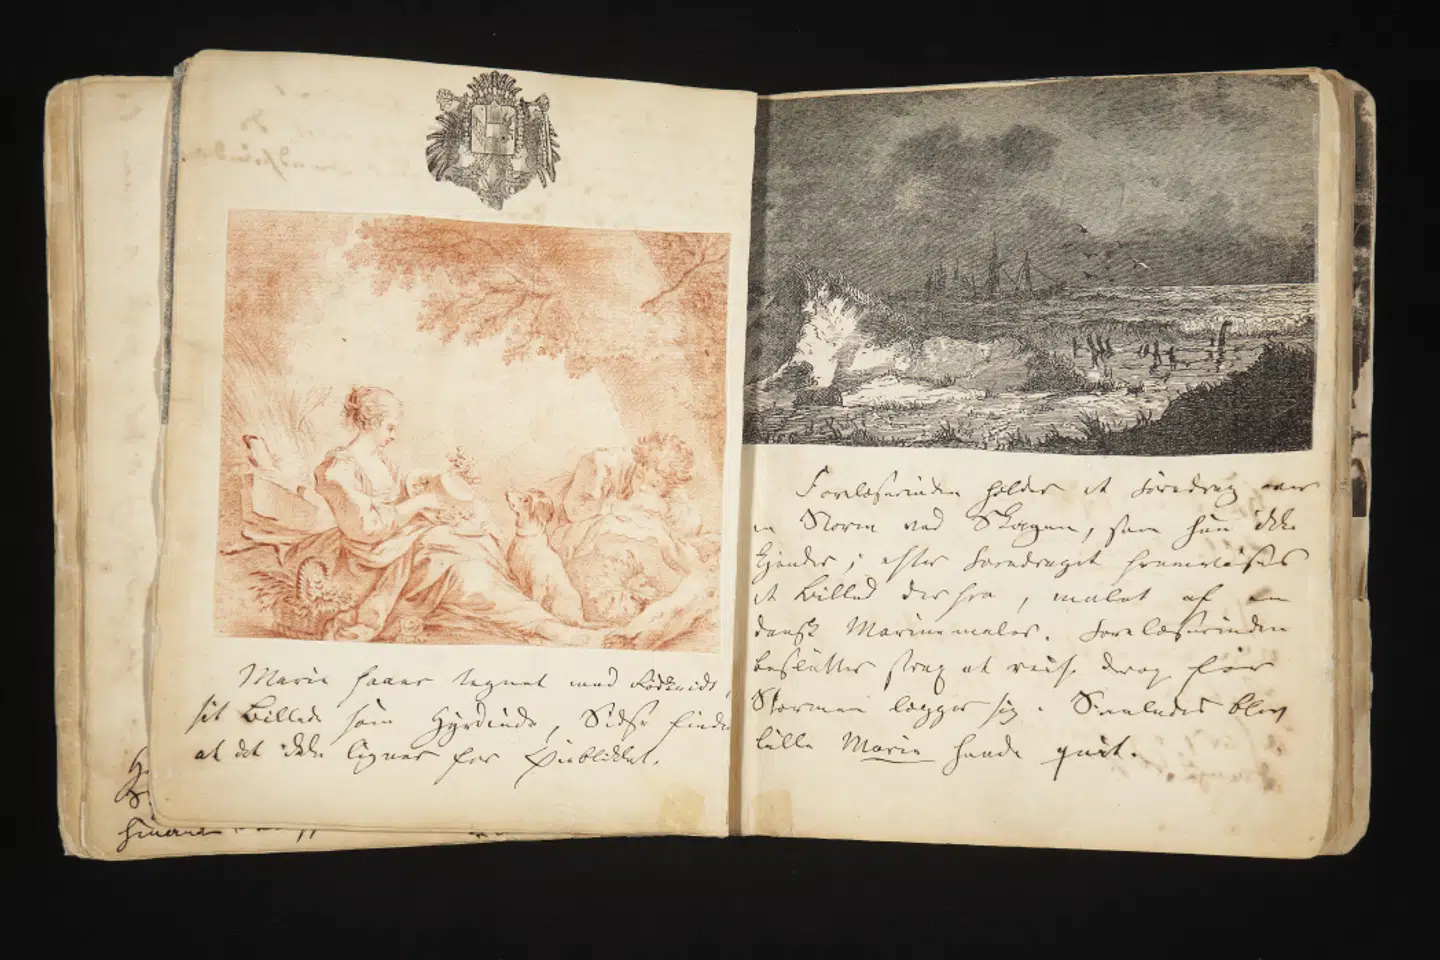 Marie faaer tegnet med Rödkridt,
sit Billede som Hyrdinde, Sidse finder
at det ikke ligner for Øieblikket.
Forelæserinden holder et Foredrag over
en Storm ved Skagen, som hun ikke
kjender; efter Foredraget fremvises
et Billed derfra, malet af en
dansk Marinemaler. Forelæserinden
beslutter strax at reise derop før
Stormen lægger sig. Saaledes blev
lille Marie hende quit.